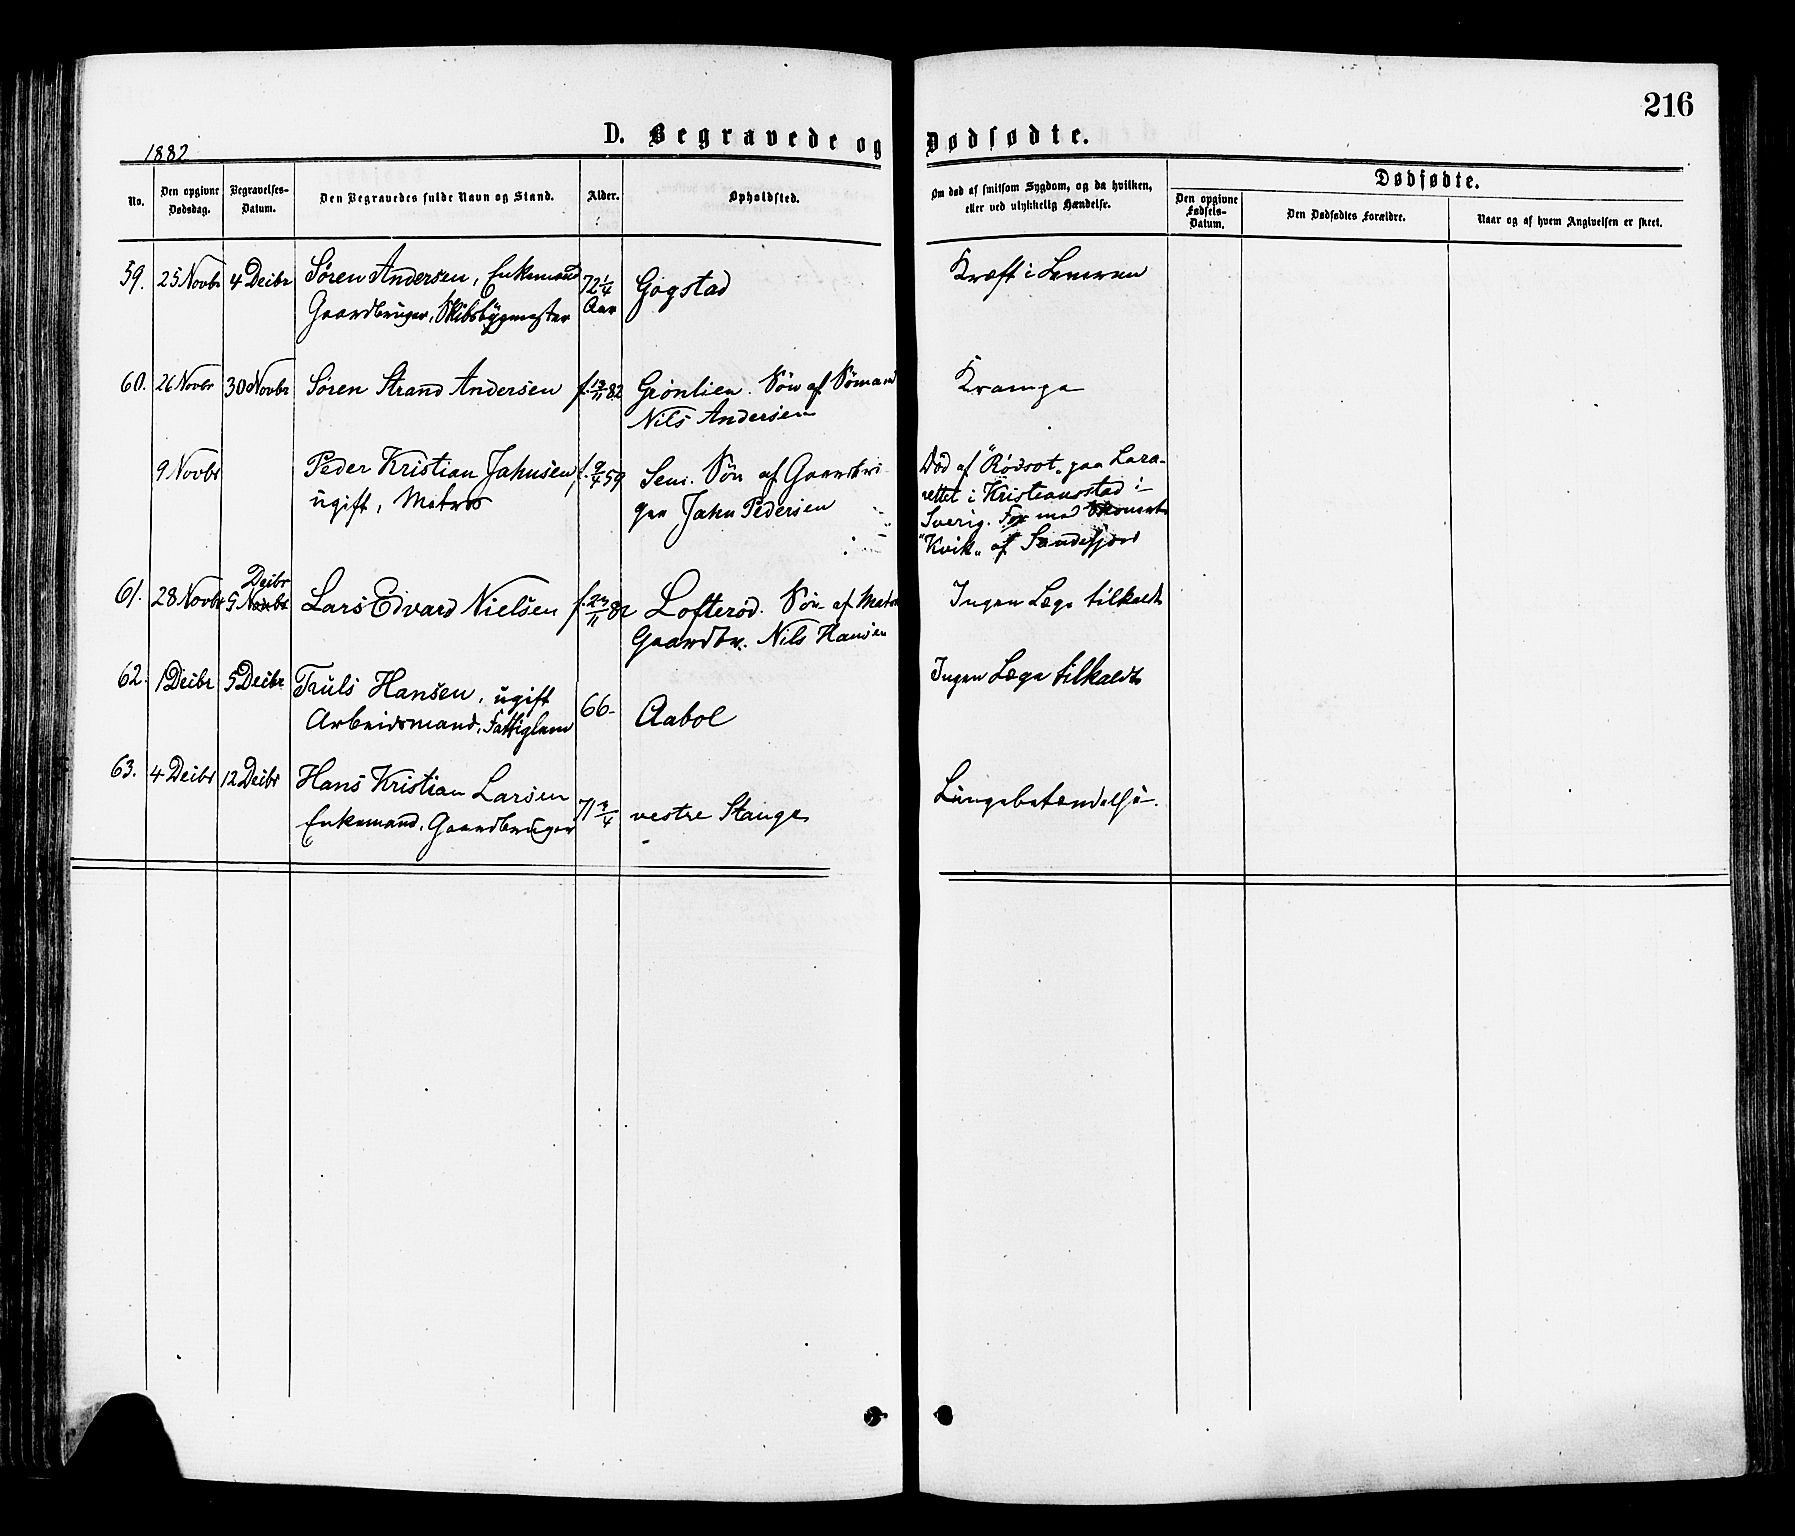 216
D. Begravede og Dødfødte.
1882
No.
Den opgivne Dødsdag.
Begravelses-Datum.
Den Begravedes fulde Navn og Stand.
Alder.
Opholdsted.
Om død af smitsom Sygdom, og da hvilken,
eller ved ulykkelig Hændelse.
Dødfødte.
Den opgivne Fødsels-Datum.
Den Dødfødtes Forældre.
Naar og af hvem Angivelsen er skeet.
59. 25 Novbr 4 Decbr Søren Andersen, Enkemand 72 1/4 Gogstad Kræft i Leveren
Gaardbruger, Skibsbygmester Aar
60. 26 Novbr 30 Novbr Søren Strand Andersen f. 12/11 82 Grønlien. Søn af Sømand Krampe
Nils Andersen
9 Novbr Peder Kristian Jahnsen, f. 9/4 59 Sem. Søn af Gaardbru- Død af "Rødsot" paa Laza-
ugift, Matros ger Jahn Pedersen rettet i Kristiansstad i
Sverig. For med
"Kvik" af Sandefjord
Decbr
61. 28 Novbr 5 Novbr Lars Edvard Nielsen f. 23/11 82 Lofterød. Søn af Ingen Læge tilkaldt
Gaardbr. Nils Hansen
62. 1 Decbr 5 Decbr Truls Hansen, ugift 66 Aabol Ingen Læge tilkaldt
Arbeidsmand, Fattiglem
63. 4 Decbr 12 Decbr Hans Kristian Larsen 71 3/4 vestre Stange Lungebetændelse
Enkemand, Gaardbruger